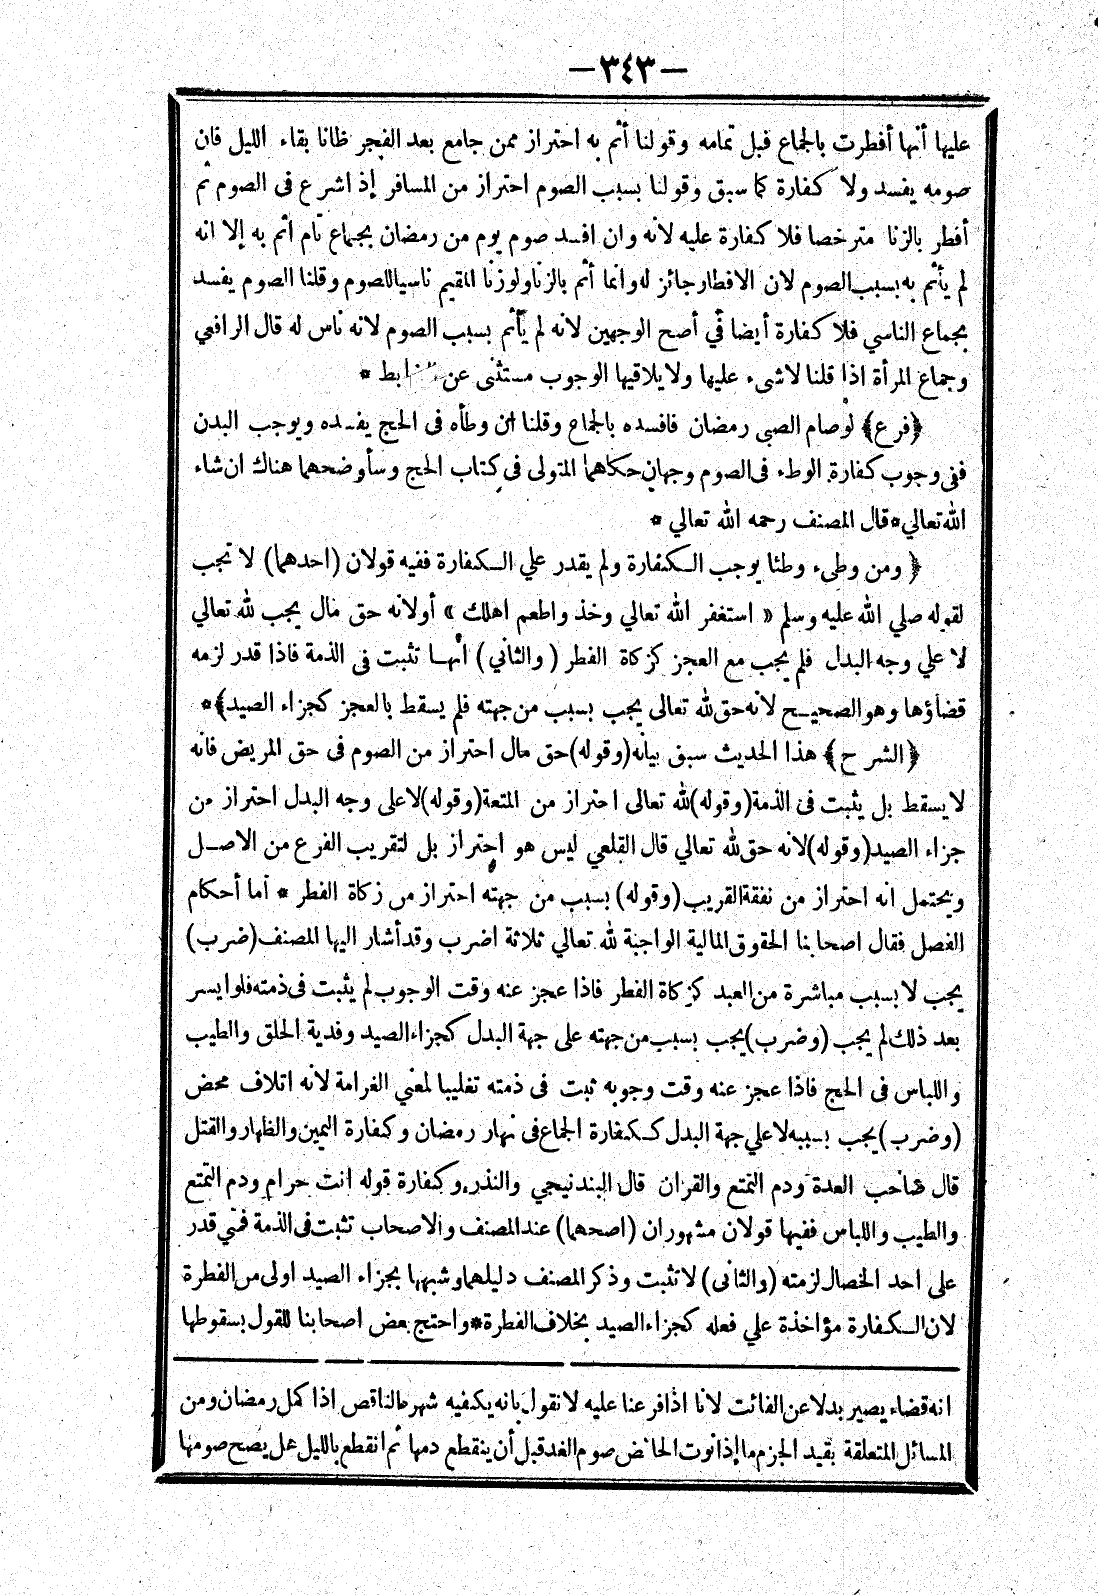 — ٣٤٣ —
عليها أنها أفطرت بالجماع قبل تمامه وقولنا أثم به احتراز ممن جامع بعد الفجر ظانا بقاء الليل فان
صومه يفسد ولا كفارة كما سبق وقولنا بسبب الصوم احتراز من المسافر إذ اشرع في الصوم ثم
أفطر بالزنا مترخصا فلا كفارة عليه لانه وان افسد صوم يوم من رمضان بجماع تام اثم به إلا انه
لم يأثم به بسبب الصوم لان الافطار جائز له وانما أثم بالزنا ولوزنا المقيم ناسيا للصوم وقلنا الصوم يفسد
بجماع الناسي فلا كفارة أيضا في أصح الوجهين لانه لم يأثم بسبب الصوم لانه ناس له قال الرافعي
وجماع المرأة اذا قلنا لاشىء عليها ولا يلاقيها الوجوب مستثنى عن الضابط *
﴿فرع﴾ لوصام الصبي رمضان فافسده بالجماع وقلنا ان وطأه فى الحج يفسده ويوجب البدن
ففى وجوب كفارة الوطء فى الصوم وجهان حكاهما المتولى فى كتاب الحج وسأوضحهما هناك ان شاء
الله تعالي * قال المصنف رحمه الله تعالي *
﴿ ومن وطىء وطئا يوجب الـكفارة ولم يقدر علي الـكفارة ففيه قولان (احدهما) لا تجب
لقوله صلي الله عليه وسلم « استغفر الله تعالي وخذ واطعم اهلك » أولانه حق مال يجب لله تعالي
لا علي وجه البدل فلم يجب مع العجز كزكاة الفطر (والثاني) انهـا تثبت فى الذمة فاذا قدر لزمه
قضاؤها وهو الصحيـح لانه حق لله تعالى يجب بسبب من جهته فلم يسقط بالعجز كجزاء الصيد﴾ *
﴿الشرح﴾ هذا الحديث سبق بيانه (وقوله) حق مال احتراز من الصوم فى حق المريض فانه
لا يسقط بل يثبت فى الذمة (وقوله) لله تعالى احتراز من المتعة (وقوله) لاعلى وجه البدل احتراز من
جزاء الصيد (وقوله) لانه حق لله تعالي قال القلعي ليس هو احتراز بل لتقريب الفرع من الاصـل
ويحتمل انه احتراز من نفقة القريب (وقوله) بسبب من جهته احتراز من زكاة الفطر * أما أحكام
الفصل فقال اصحابنا الحقوق المالية الواجبة لله تعالي ثلاثة اضرب وقد أشار اليها المصنف (ضرب)
يجب لا بسبب مباشرة من العبد كزكاة الفطر فاذا عجز عنه وقت الوجوب لم يثبت فى ذمته فلو ايسر
بعد ذلك لم يجب (وضرب) يجب بسبب من جهته على جهة البدل كجزاء الصيد وفدية الحلق والطيب
واللباس فى الحج فاذا عجز عنه وقت وجوبه ثبت فى ذمته تغليبا لمعني الغرامة لانه اتلاف محض
(وضرب) يجب بسببه لا علي جهة البدل كـكفارة الجماع فى نهار رمضان وكفارة اليمين والظهار والقتل
قال صاحب العدة ودم التمتع والقران قال البندنيجي والنذر وكفارة قوله انت حرام ودم التمتع
والطيب واللباس ففيها قولان مشهوران (اصحهما) عند المصنف والاصحاب تثبت فى الذمة فمتي قدر
على احد الخصال لزمته (والثانى) لا تثبت وذكر المصنف دليلهما وشبهها بجزاء الصيد اولى من الفطرة
لان الـكفارة مؤاخذة علي فعله كجزاء الصيد بخلاف الفطرة * واحتج بعض اصحابنا للقول بسقوطها
انه قضاء يصير بدلا عن الفائت لانا اذا فرعنا عليه لا نقول بانه يكفيه شهر مالناقص اذا كمل رمضان ومن
المسائل المتعلقة بقيد الجزم ما إذا نوت الحائض صوم الغد قبل أن ينقطع دمها ثم انقطع بالليل هل يصح صومها